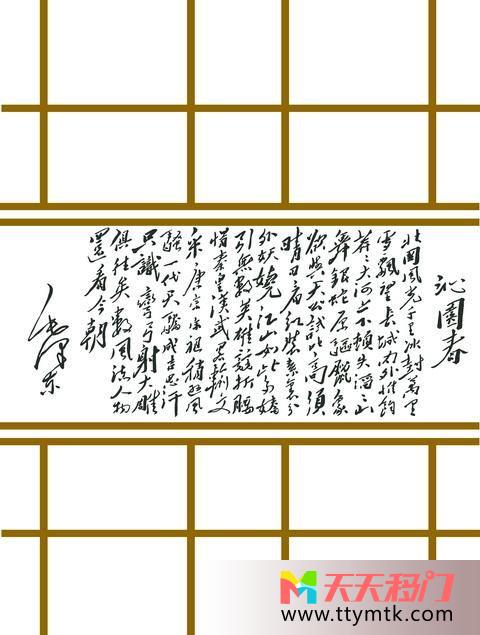 沁園春
北國風光千里冰封萬里
雪飄望長城内外惟餘
莽莽大河上下頓失滔滔山
舞銀蛇原驅臘象
欲與天公試比高須
晴日看紅裝素裹分
外妖嬈江山如此多嬌
引無數英雄競折腰
惜秦皇漢武略輸文
采唐宗宋祖稍遜風
騷一代天驕成吉思汗
只識彎弓射大雕
俱往矣數風流人物
還看今朝
毛澤东
天天移门
www.ttymtk.com